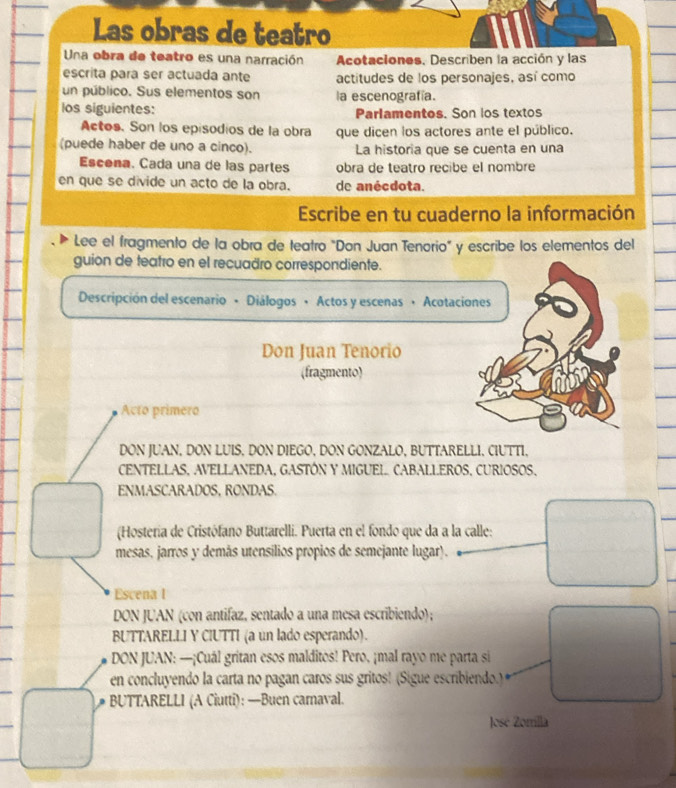 Las obras de teatro
Una obra de teatro es una narración
escrita para ser actuada ante
un público. Sus elementos son
los siguientes:
Actos. Son los episodios de la obra
(puede haber de uno a cinco).
Escena. Cada una de las partes
en que se divide un acto de la obra.
Acotaciones. Describen la acción y las
actitudes de los personajes, así como
la escenografía.
Parlamentos. Son los textos
que dicen los actores ante el público.
La historia que se cuenta en una
obra de teatro recibe el nombre
de anécdota.
Escribe en tu cuaderno la información
Lee el fragmento de la obra de teatro "Don Juan Tenorio" y escribe los elementos del
guion de teatro en el recuadro correspondiente.
Descripción del escenario • Diálogos • Actos y escenas • Acotaciones
Don Juan Tenorio
(fragmento)
Acto primero
DON JUAN, DON LUIS, DON DIEGO, DON GONZALO, BUTTARELLI, CIUTTI,
CENTELLAS, AVELLANEDA, GASTÓN Y MIGUEL. CABALLEROS, CURIOSOS,
ENMASCARADOS, RONDAS.
(Hostería de Cristófano Buttarelli. Puerta en el fondo que da a la calle:
mesas, jarros y demás utensilios propios de semejante lugar).
Escena I
DON JUAN (con antifaz, sentado a una mesa escribiendo);
BUTTARELLI Y CIUTTI (a un lado esperando).
DON JUAN: —¡Cuál gritan esos malditos! Pero, ¡mal rayo me parta si
en concluyendo la carta no pagan caros sus gritos! (Sigue escribiendo.)
BUTTARELLI (A Ciutti): —Buen carnaval.
José Zorrilla